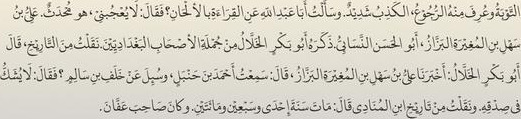 التَّوْبَةُ وعُرِفَ مِنْهُ الرُّجُوْعُ، الكَذِبُ شَدِيْدٌ. وسَأَلْتُ أَبَا عَبْدِ اللهِ عَنِ القِرَاءَةِ بالألْحَانِ؟ فَقَالَ: لَا يُعْجِبُنِي، هو مُحْدَثٌ. عَلِيُّ بنُ
سَهْلِ بنِ المُغِيْرَةِ البَزَّازُ، أَبُو الحَسَنِ النَّسَائِيُّ، ذَكَرَهُ أَبُو بَكْرٍ الخَلَّالُ مِنْ جُمْلَةِ الأَصْحَابِ البَغْدَادِيِّيْنَ. نَقَلْتُ مِنَ التَّارِيْخِ، قَالَ
أَبُو بَكْرٍ الخَلَّالُ: أَخْبَرَنَا عَلِيُّ بنُ سَهْلِ بنِ المُغِيْرَةِ البَزَّازُ، قَالَ: سَمِعْتُ أَحْمَدَ بنَ حَنْبَلٍ، وسُئِلَ عَنْ خَلَفِ بنِ سَالِمٍ؟ فَقَالَ: لَا يُشَكُّ
فِي صِدْقِهِ. ونَقَلْتُ مِنْ تَارِيْخِ ابنِ المُنَادِي قَالَ: مَاتَ سَنَةَ إِحْدَى وسَبْعِيْنَ ومَائَتَيْنِ. وكَانَ صَاحِبَ عَفَّانَ.